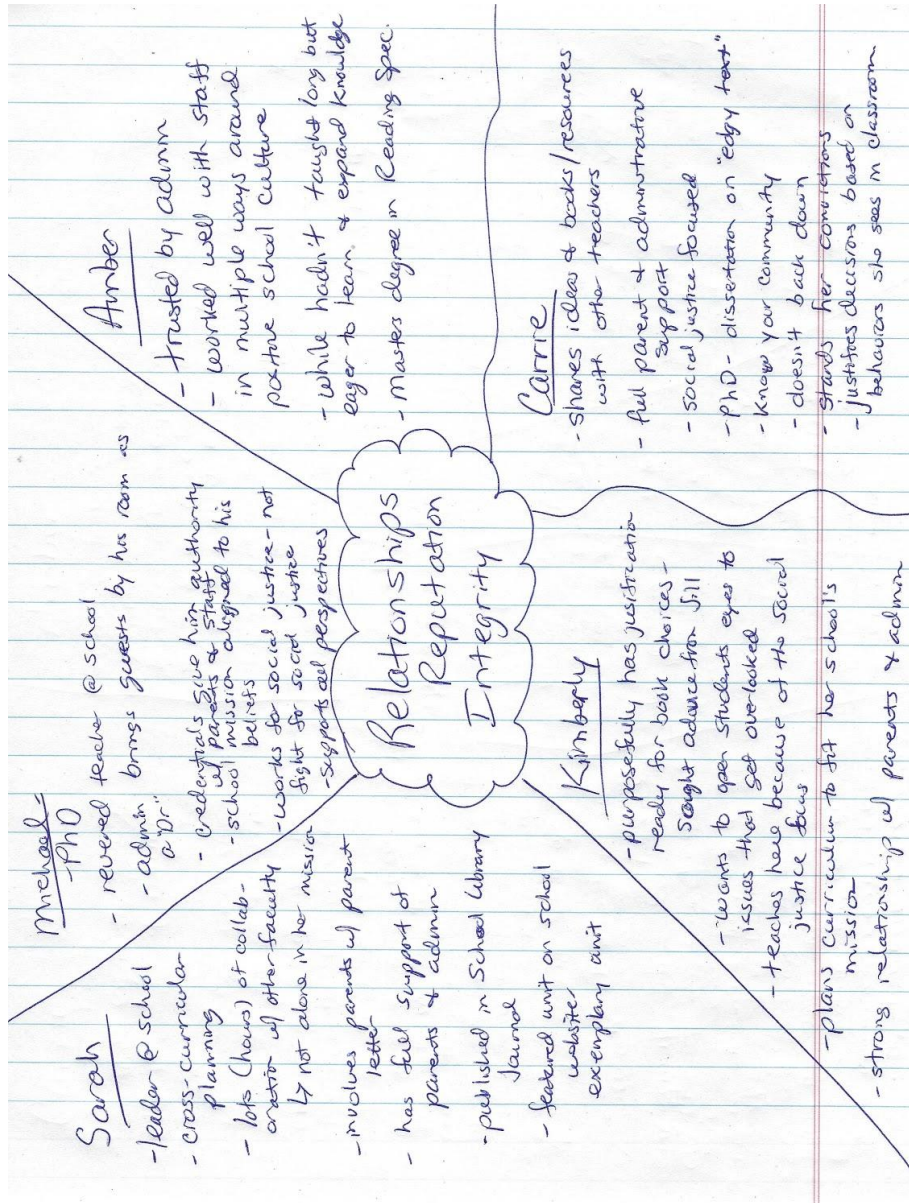 Sarah
- leader @ school
- cross-curricular
planning
- lots (hours) of collab-
oration w/ other faculty
↳ not alone in her mission
- involves parents w/ parent
letter
- has full support of
parents & admin
- published in School Library
Journal
- featured unit on school
website
exemplary unit
Michael -
PhD
- revered teacher @ school
- admin brings guests by his room as
a "Dr."
- credentials give him authority
w/ parents & staff
- school mission aligned to his
beliefs
- works for social justice - not
fight for social justice
- supports all perspectives
Amber
- trusted by admin
- worked well with staff
in multiple ways around
positive school culture
- while hadn't taught long but
eager to learn & expand knowledge
- masters degree in Reading Spec.
Relationships
Reputation
Integrity
Kimberly
- purposefully has justification
ready for book choices -
sought advance from Jill
- wants to open students eyes to
issues that get overlooked
- teaches here because of the social
justice focus
- plans curriculum to fit her school's
mission
- strong relationship w/ parents & admin
Carrie
- shares ideas & books/resources
with other teachers
- full parent & administrative
support
- social justice focused
- PhD - dissertation on "edgy text"
- Know your community
- doesn't back down
- stands her convictions
- justifies decisions based on
behaviors she sees in classroom